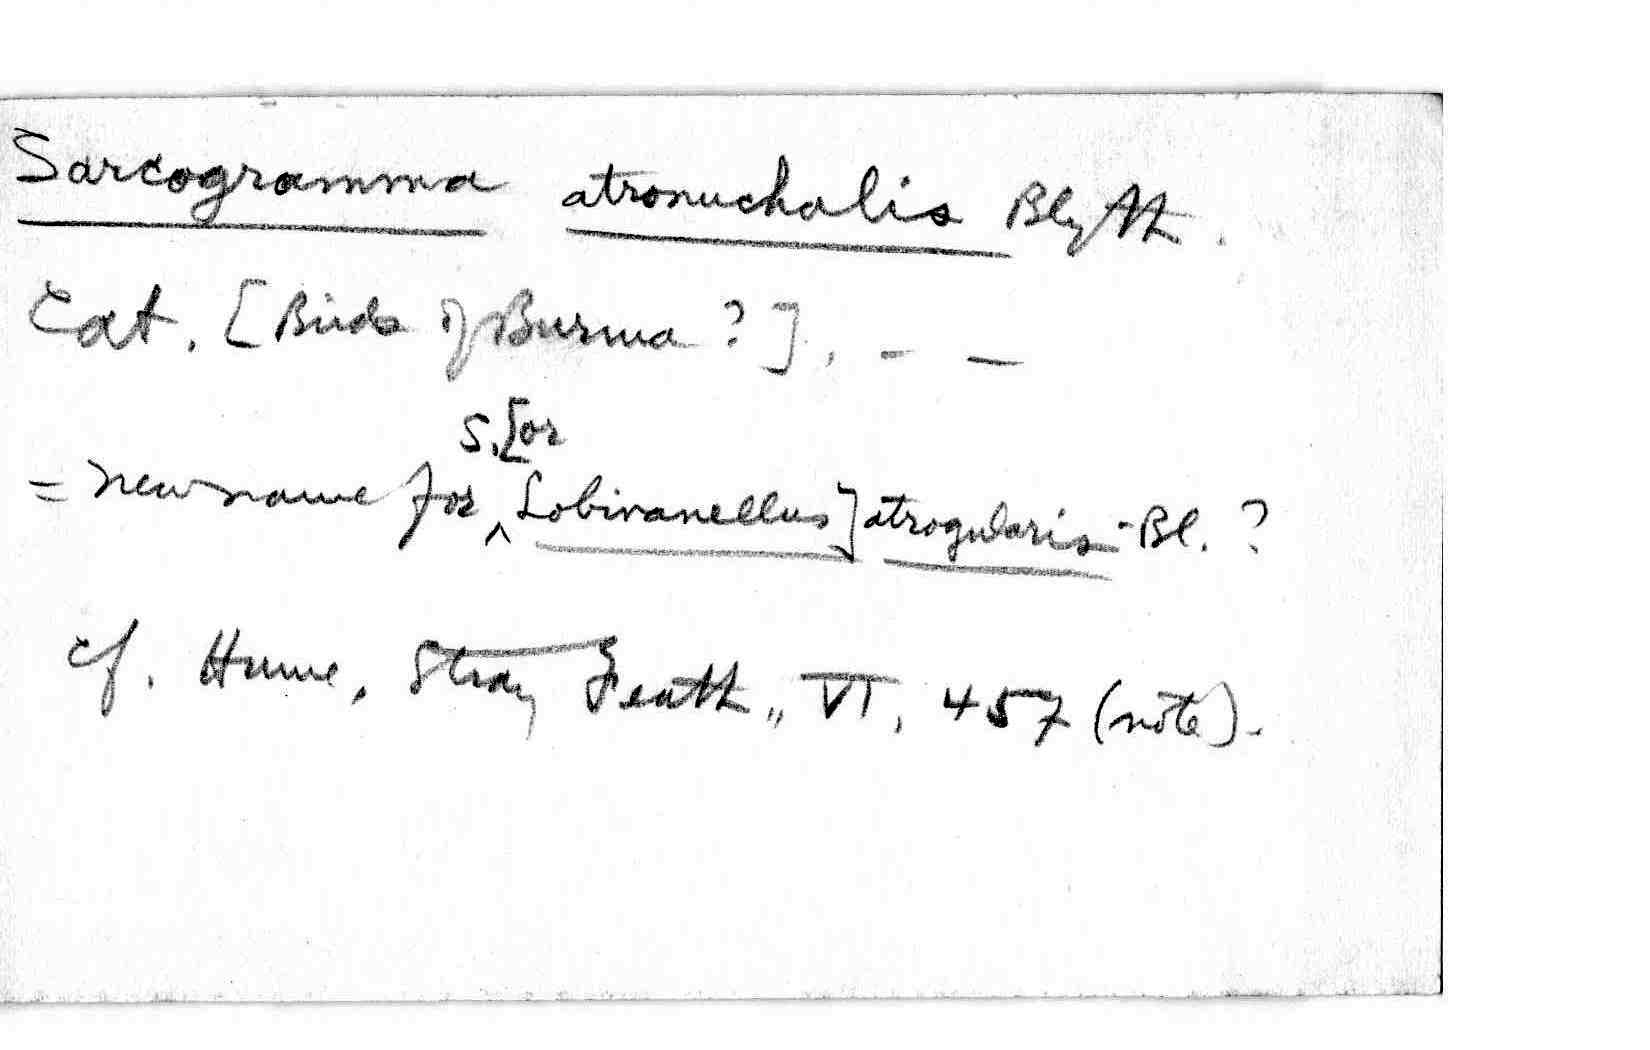 Sarcogramma atronuchalis Blyth.
Cat. [Birds of Burma ?], - —
S. [or
= new name for ^ Lobivanellus] atrogularis Bl. ?
cf. Hume, Stray Feath., VI, 457 (note).